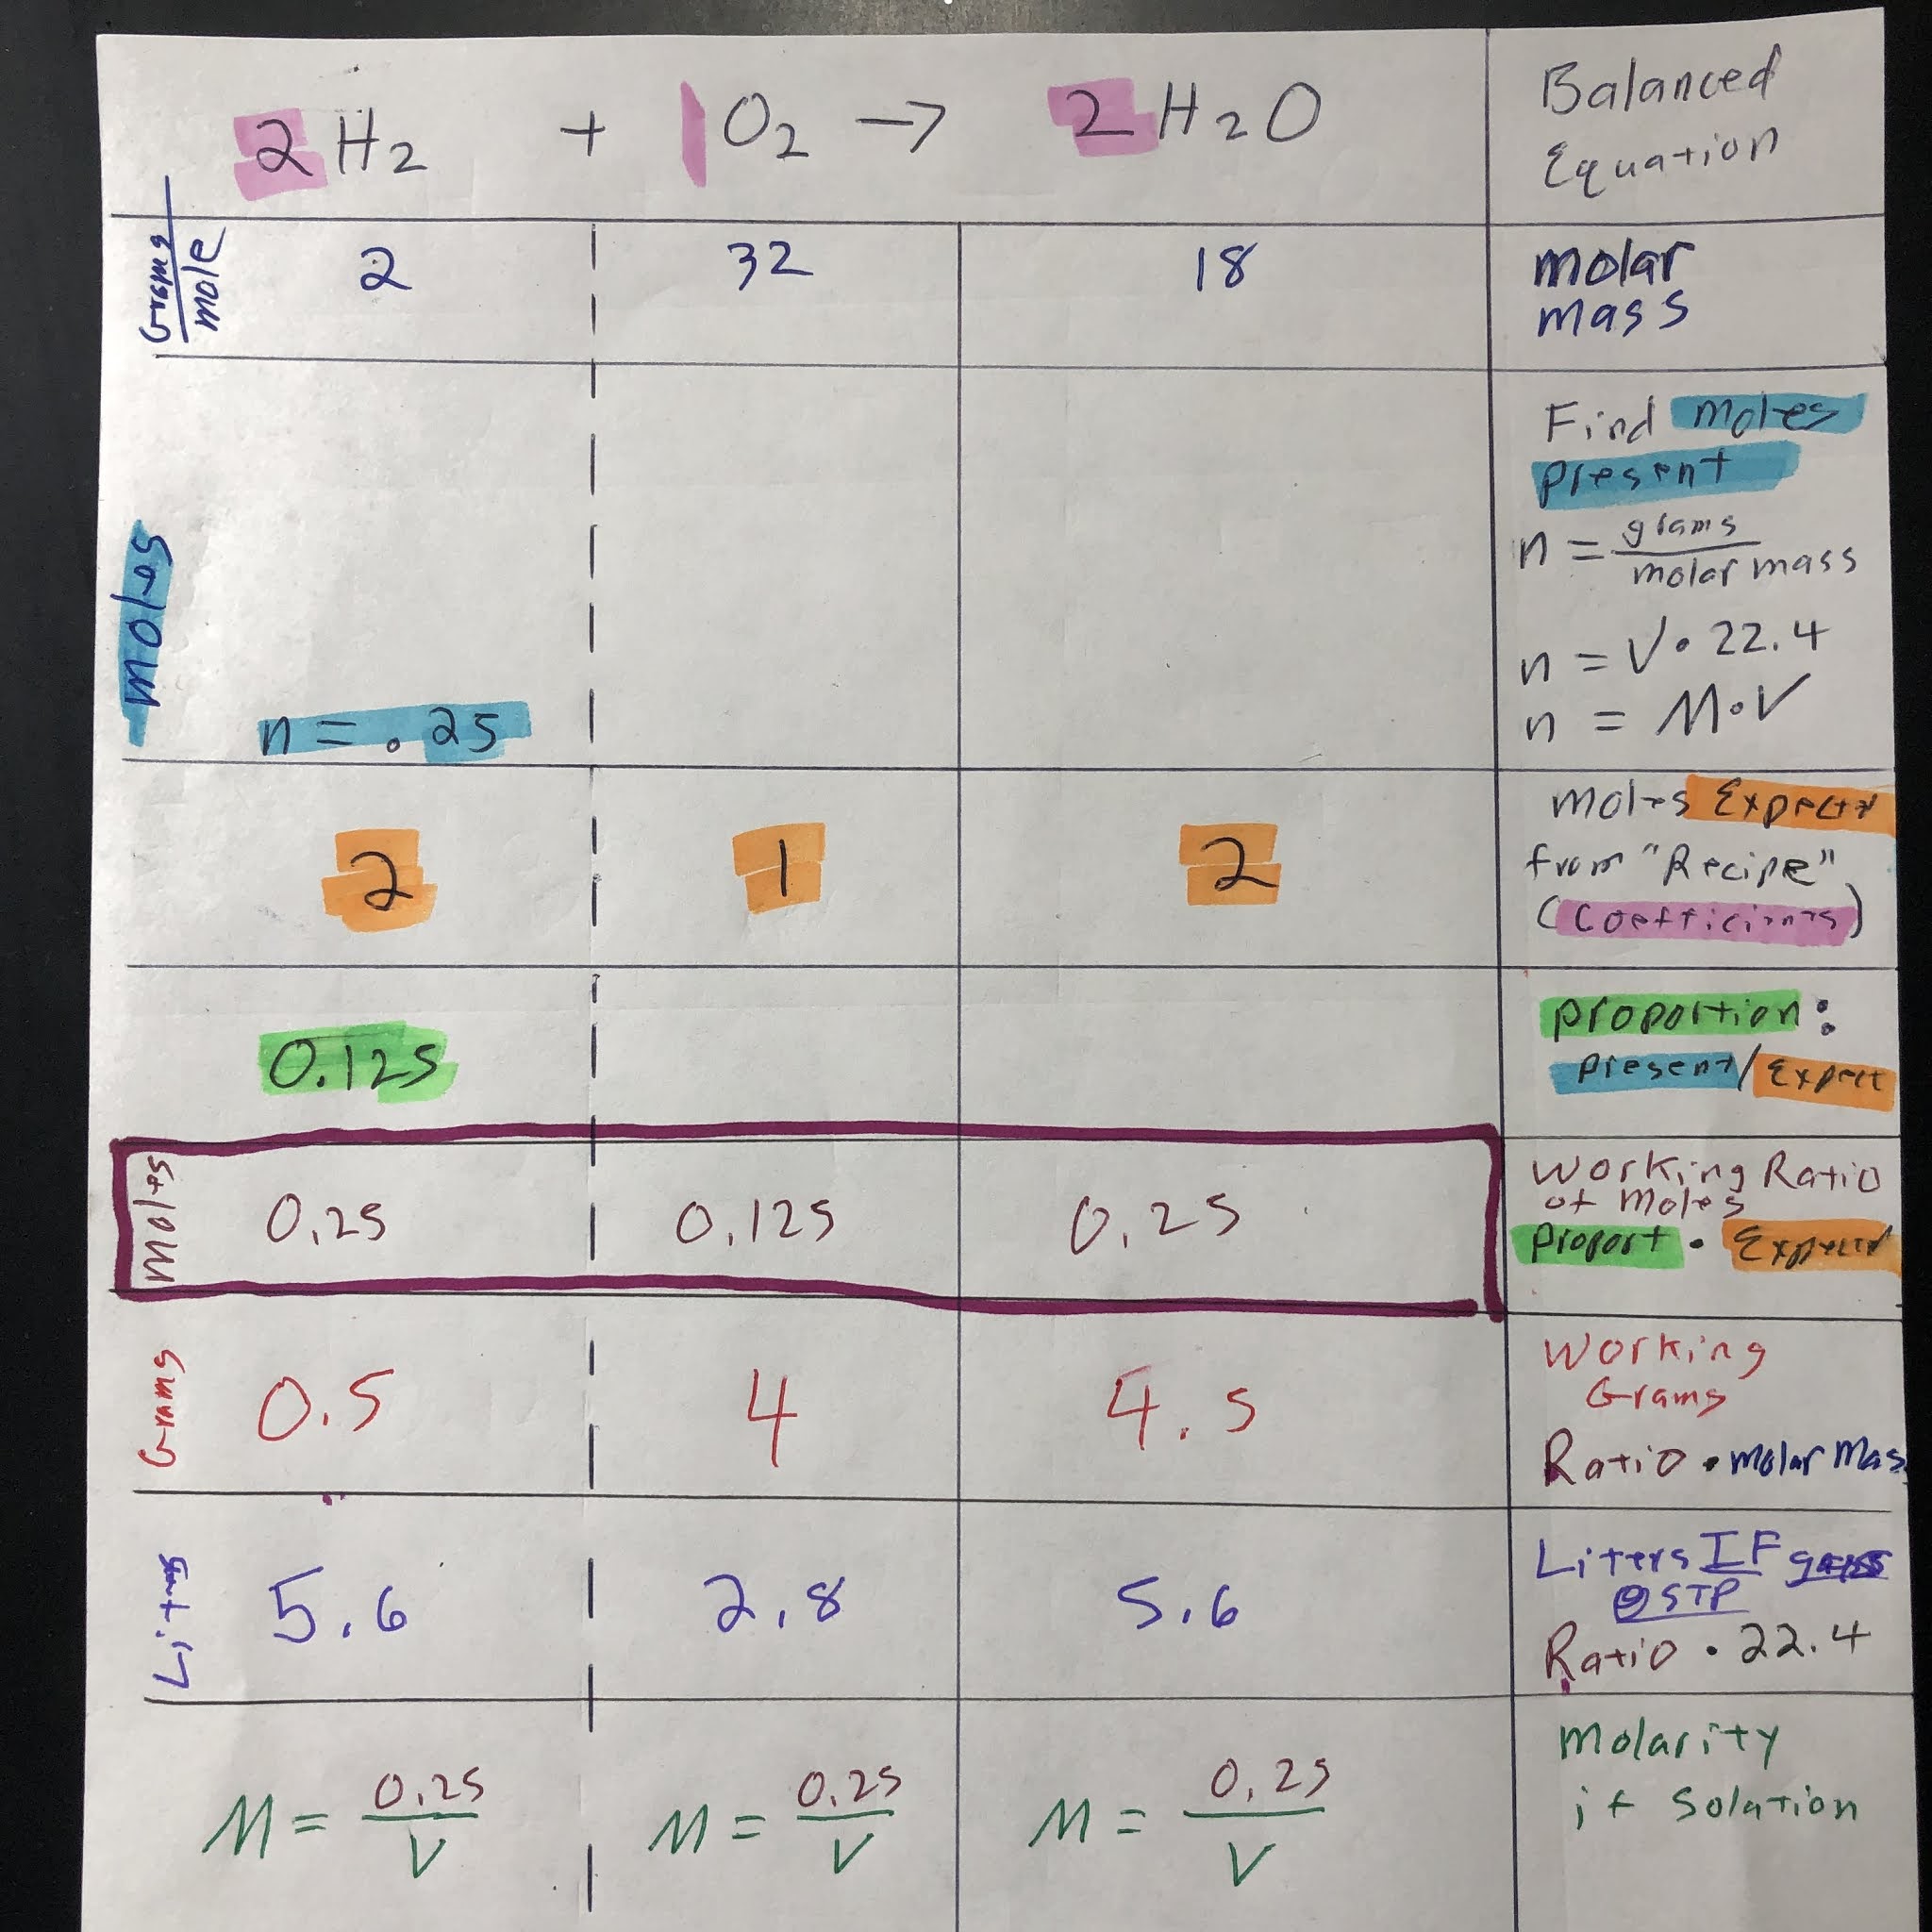 2 H2 + 1 O2 → 2 H2O
Balanced
Equation
Grams
mole
2
32
18
molar
mass
moles
n = .25
Find moles
present
n = grams
molar mass
n = V • 22.4
n = M • V
2
1
2
moles Expected
from "Recipe"
(Coefficients)
0.125
proportion:
present/Expect
moles
0.25
0.125
0.25
working Ratio
of moles
Proport • Expected
Grams
0.5
4
4.5
working
Grams
Ratio • molar Mas
Liters
5.6
2.8
5.6
Liters IF gases
@ STP
Ratio • 22.4
M = 0.25
V
M = 0.25
V
M = 0.25
V
Molarity
if Solution